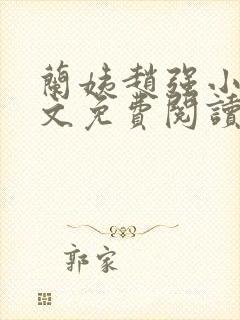 蘭姨趙强小
文免費閱讀
郭家